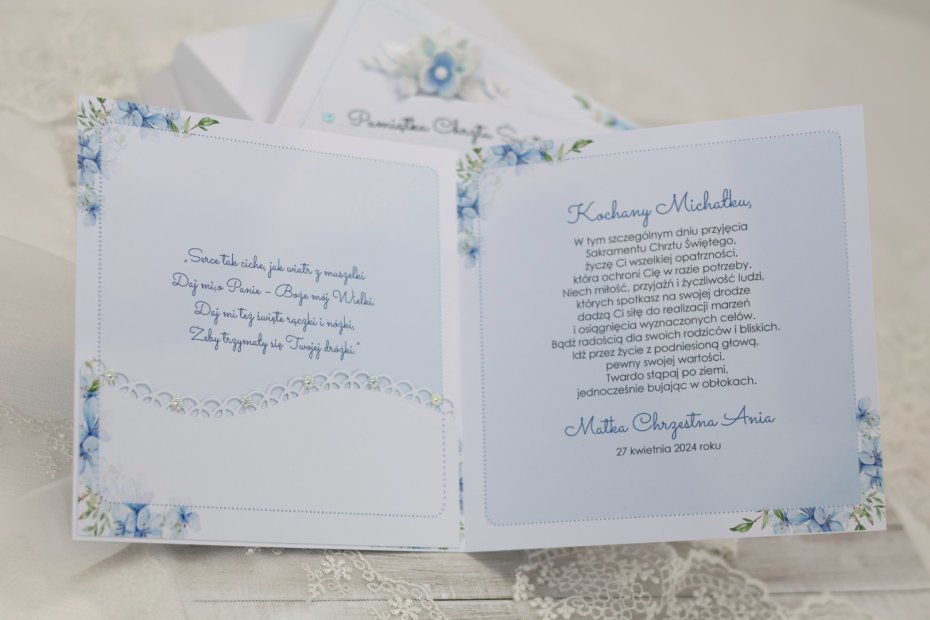 Pamiątka Chrztu
„Serce tak ciche, jak wiatr z muszelki
Daj mi,o Panie – Boże mój Wielki.
Daj mi też święte rączki i nóżki,
Żeby trzymały się Twojej dróżki.”
Kochany Michałku,
W tym szczególnym dniu przyjęcia
Sakramentu Chrztu Świętego,
życzę Ci wszelkiej opatrzności,
która ochroni Cię w razie potrzeby.
Niech miłość, przyjaźń i życzliwość ludzi,
których spotkasz na swojej drodze
dadzą Ci siłę do realizacji marzeń
i osiągnięcia wyznaczonych celów.
Bądź radością dla swoich rodziców i bliskich.
Idź przez życie z podniesioną głową,
pewny swojej wartości.
Twardo stąpaj po ziemi,
jednocześnie bujając w obłokach.
Matka Chrzestna Ania
27 kwietnia 2024 roku